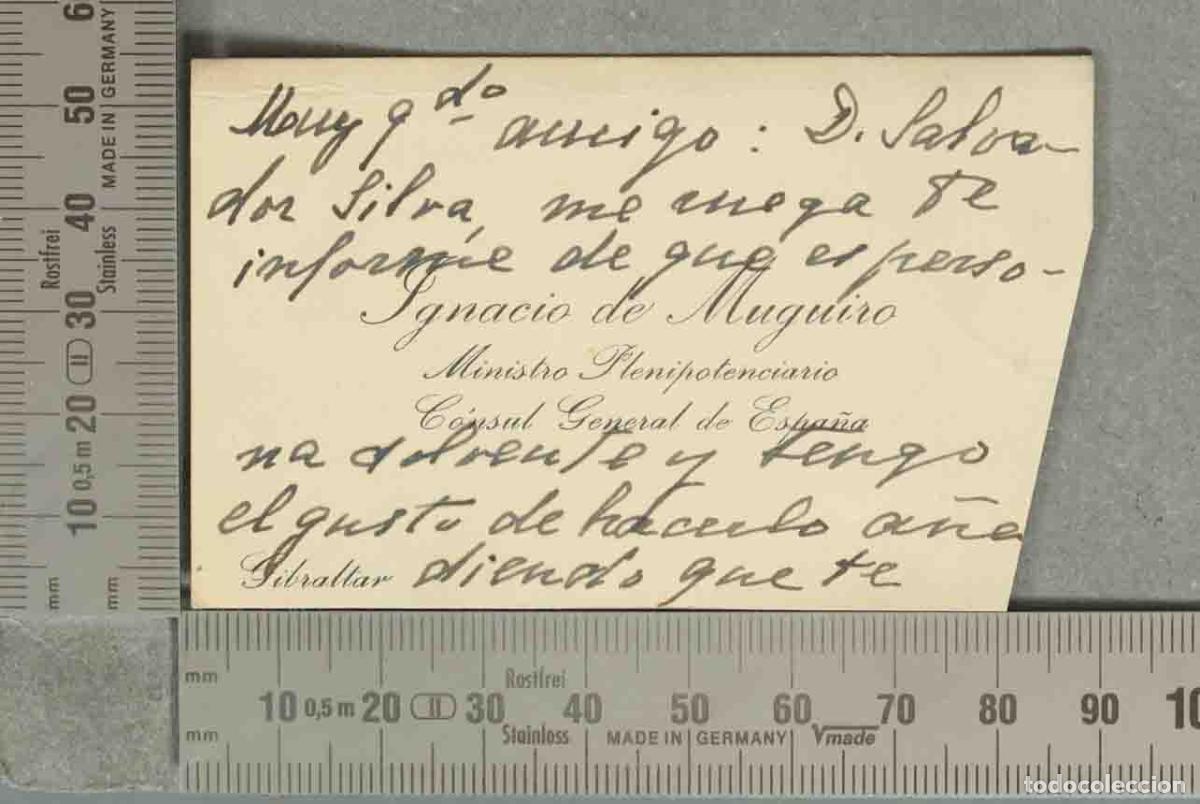 Muy q.do amigo: D. Salva-
dor Silva, me ruega te
informe de que es perso-
Ignacio de Muguiro
Ministro Plenipotenciario
Cónsul General de España
na solvente y tengo
el gusto de hacerlo aña
Gibraltar diendo que te
mm
10 0,5 m 20 30 40 50 6
Rostfrei
Stainless MADE IN GERMANY
mm
mm
10 0,5 m 20 30 40 50 60 70 80 90 10
Rostfrei
mm
Stainless MADE IN GERMANY Vmade
todocoleccion